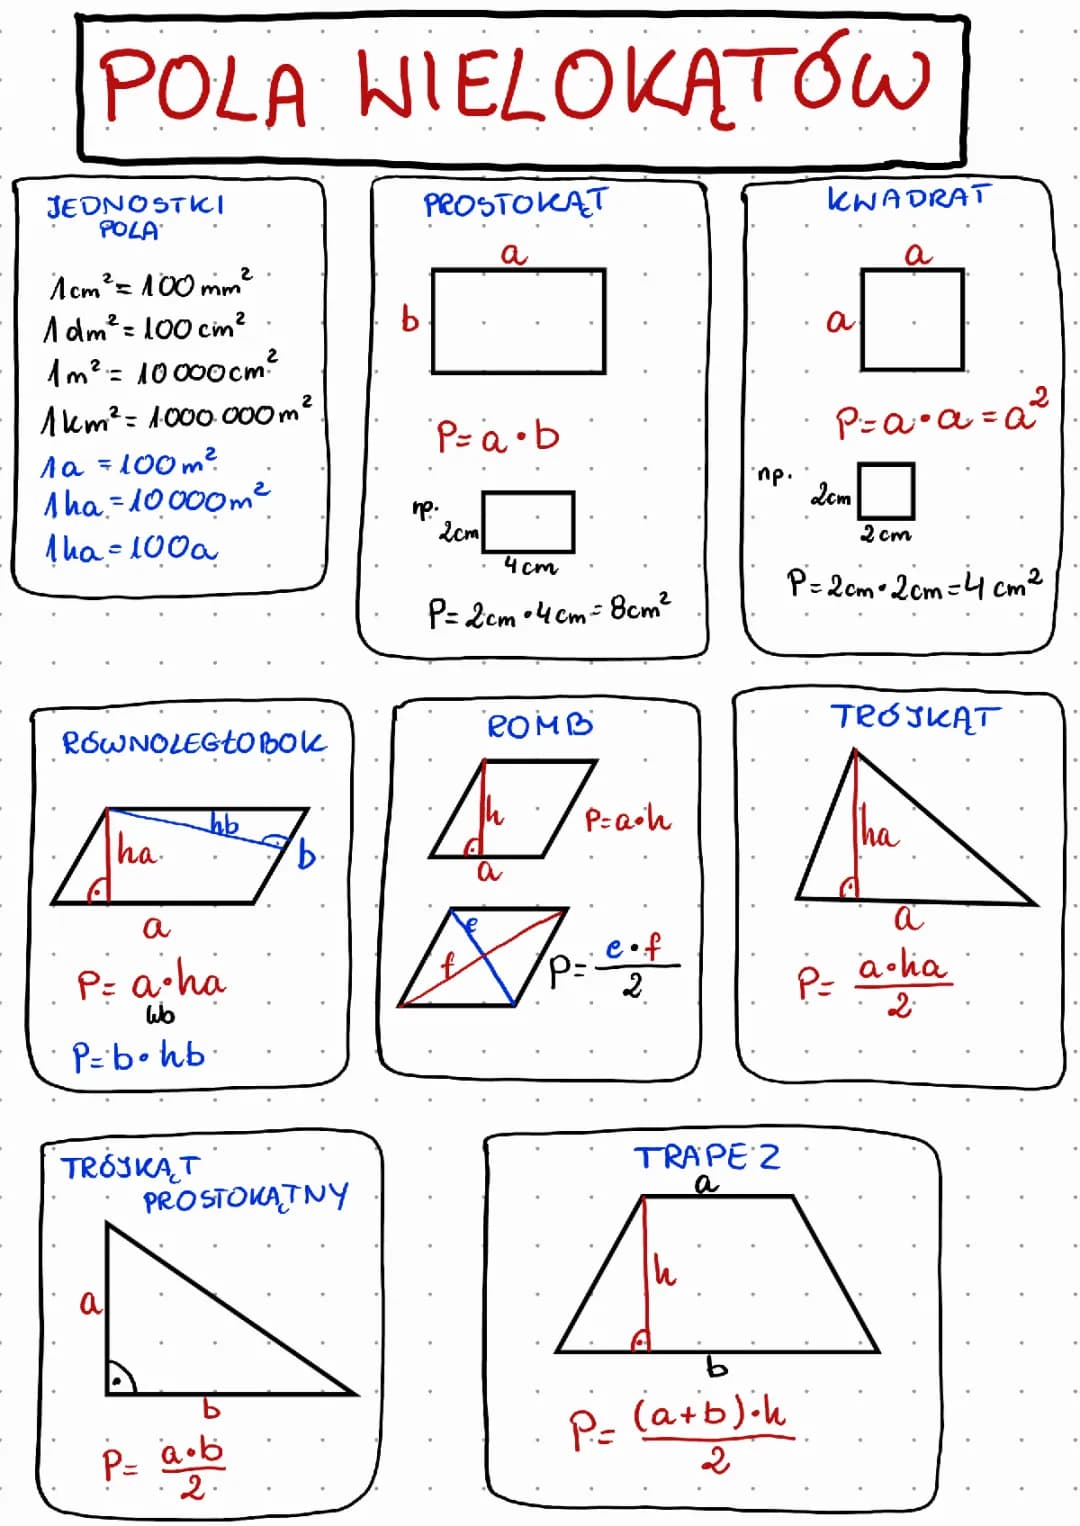 POLA WIELOKĄTÓW
JEDNOSTKI
POLA
1cm²= 100 mm²
1 dm² = 100 cm²
1m² = 10 000cm²
1km² = 1000 000m²
1a = 100m²
1ha = 10 000m²
1ha = 100a
PROSTOKĄT
a
b
P= a • b
np.
2cm
4cm
P= 2cm • 4cm = 8cm²
KWADRAT
a
a
P= a • a = a²
np.
2cm
2 cm
P= 2cm • 2cm = 4 cm²
RÓWNOLEGŁOBOK
hb
ha
b
a
P= a • ha
lub
P= b • hb
ROMB
h
P= a • h
a
e
f
P= e • f
2
TRÓJKĄT
ha
a
P= a • ha
2
TRÓJKĄT
PROSTOKĄTNY
a
b
P= a • b
2
TRAPEZ
a
h
b
P= (a+b) • h
2